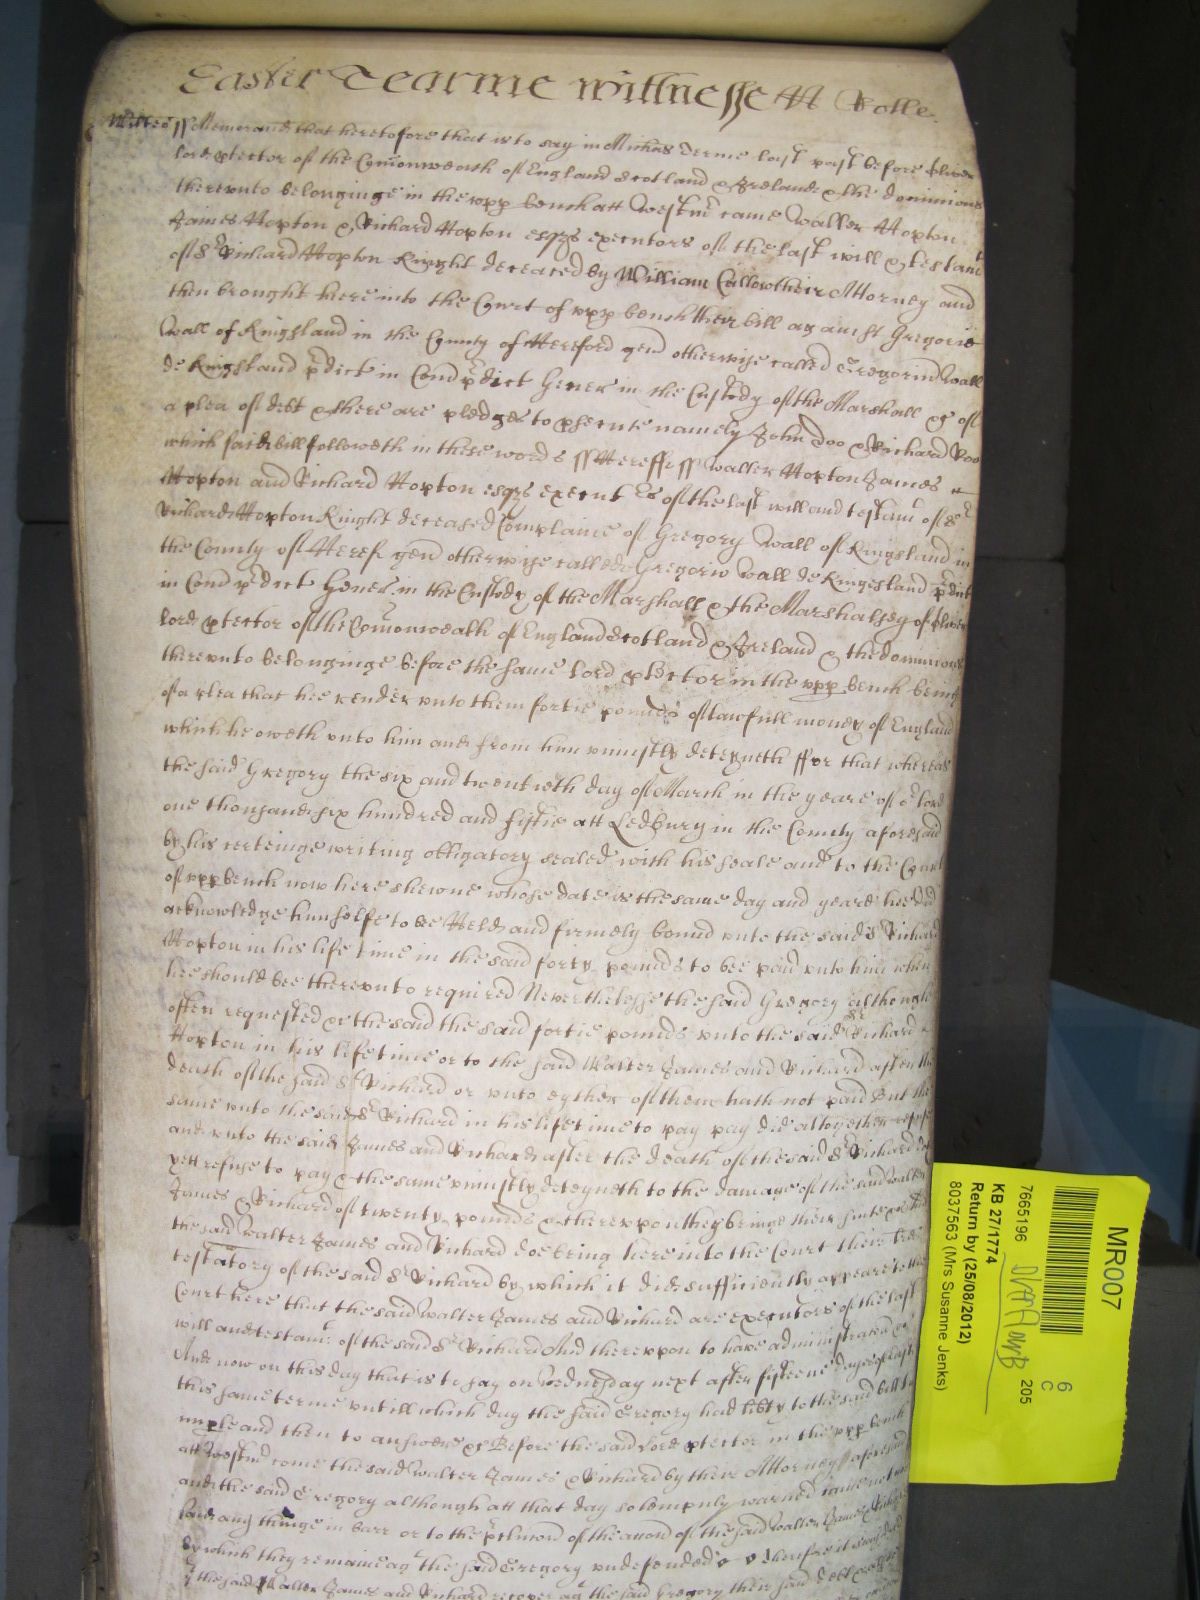 Easter Tearme Wittnesse Rolle
ss Memorand that heretofore that is to say in Michas Terme last past before Oliver
lord ptector of the Comonwealth of England Scotland & Ireland & the dominions
thereunto belonginge in the upp bench att Westmr came Walter Hopton
James Hopton & Richard Hopton esqrs executors of the last will & testamt
of Sr Richard Hopton Knight deceased by William Callow their Attorney and
then brought here into the Court of upp bench their bill against Gregorie
Wall of Kingsland in the County of Hereford gen otherwise called Gregoriu Wall
de Kingsland pdict in Com pdict Gener in the Custody of the Marshall & of
a plea of debt & there are pledges to psecute namely John Doo & Richard Roo
which said bill followeth in these words ss Hereff ss Walter Hopton James
Hopton and Richard Hopton esqrs executrs of the last will and testamt of Sr
Richard Hopton Knight deceased Complaine of Gregory Wall of Kingsland in
the County of Heref gen otherwise called Gregoriu Wall de Kingesland pdict
in Com pdict Gener in the Custody of the Marshall & the Marshalsey of Oliver
lord ptector of the Comonwealth of England Scotland & Ireland & the dominions
thereunto belonginge before the same lord ptector in the upp bench being
of a plea that hee render unto them fortie pounds of lawfull money of England
which he oweth unto him and from him uniustly deteyneth ffor that whereas
the said Gregory the six and twentieth day of March in the yeare of or lord
one thousand six hundred and fiftie att Ledbury in the County aforesaid
by his certeine writing obligatory sealed with his seale and to the Court
of upp bench now here shewne whose date is the same day and yeare hee did
acknowledge himselfe to bee Held and firmely bound unto the said Sr Richard
Hopton in his life time in the said forty pounds to bee paid unto him when
hee should bee thereunto required Neverthelesse the said Gregory although
often requested &c the said the said fortie pounds unto the said Sr Richard
Hopton in his life time or to the said Walter James and Richard after the
death of the said Sr Richard or unto eyther of them hath not paid But the
same unto the said Sr Richard in his life time to pay pay did altogether refuse
and unto the said James and Richard after the death of the said Sr Richard
yett refuse to pay & the same uniustly deteyneth to the damage of the said Walter
James & Richard of twenty pounds & thereupon they bringe their suite
the said Walter James and Richard doe bring here into the Court their
testatory of the said Sr Richard by which it did sufficiently appeare to the
Court here that the said Walter James and Richard are executors of the last
will and testamt of the said Sr Richard And thereupon to have administration
And now on this day that is to say on Wednesday next after fifteene dayes of
this same terme untill which day the said Gregory had to the said bill to
imple and then to answere &c Before the said Lord ptector in the upp bench
att Westmr come the said Walter James & Richard by their Attorney aforesaid
and the said Gregory although att that day solempnly warned came not
said any thinge in barr or to the of the of the said Walter James
by which they remaine agt the said Gregory undefended Therefore it is
the said Walter James and Richard recover agt the said Gregory their said debt
MR007
6
C
7665196
205
KB 27/1774
Return by (25/08/2012)
8037563 (Mrs Susanne Jenks)